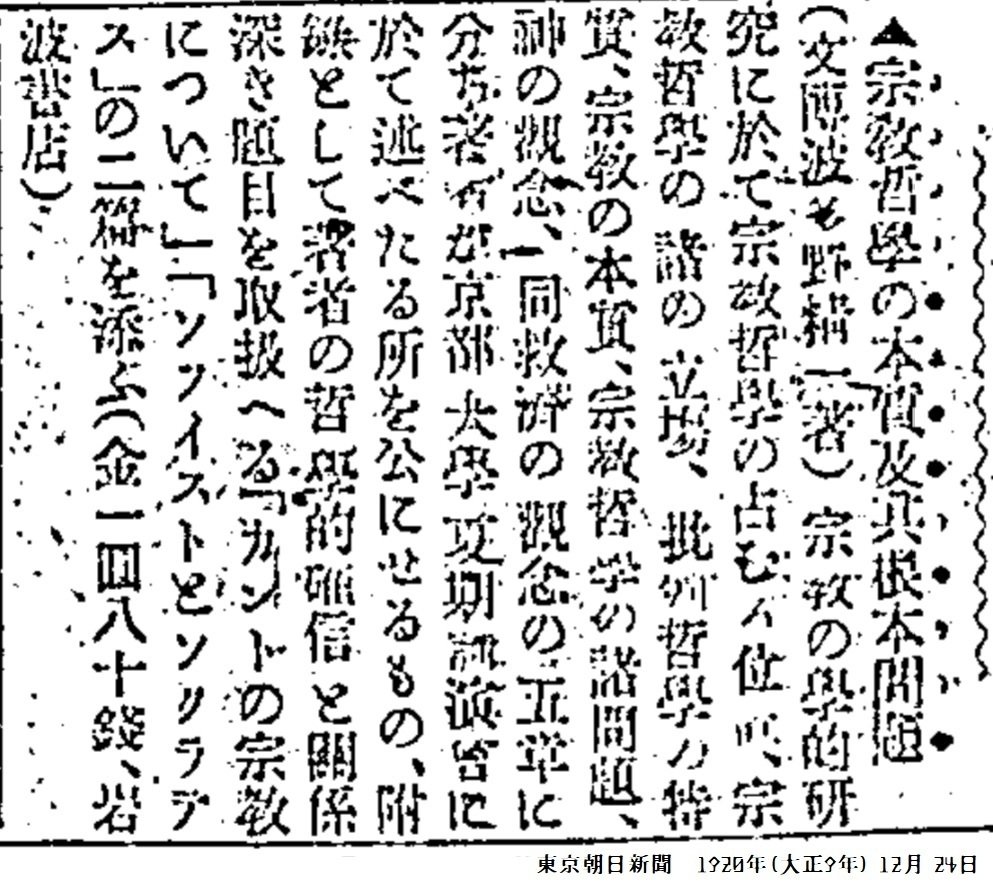 ▲宗教哲學の本質及其根本問題
(文博波多野精一著)宗教の學的研
究に於て宗教哲學の占むる位置、宗
教哲學の諸の立場、批判哲學の特
質、宗教の本質、宗教哲学の諸問題、
神の觀念、同救濟の觀念の五章に
分ち著者が京都大學夏期講演會に
於て述べたる所を公にせるもの、附
錄として著者の哲學的確信と關係
深き題目を取扱へる「カントの宗教
について」「ソフイストとソクラテ
ス」の二篇を添ふ(金一圓八十錢、岩
波書店)
東京朝日新聞 1920年(大正9年) 12月 24日